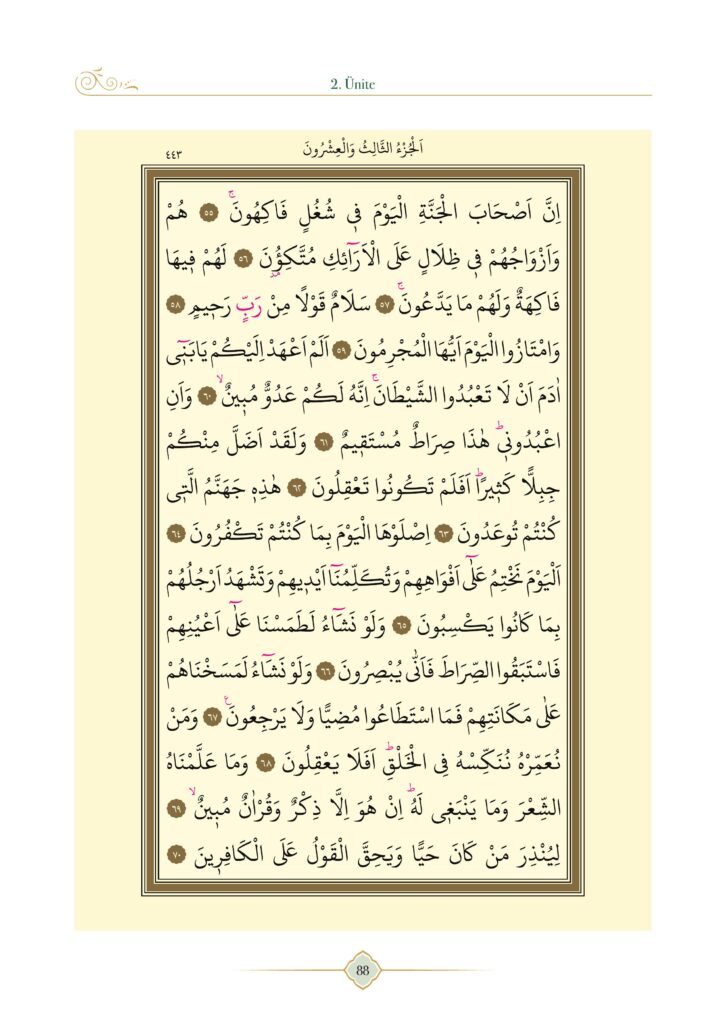 2. Ünite
اَلْجُزْءُ الثَّالِثُ وَالْعِشْرُونَ
٤٤٣
اِنَّ اَصْحَابَ الْجَنَّةِ الْيَوْمَ ف۪ي شُغُلٍ فَاكِهُونَۚ ﴿٥٥﴾ هُمْ
وَاَزْوَاجُهُمْ ف۪ي ظِلَالٍ عَلَى الْاَرَٓائِكِ مُتَّكِؤُ۫نَ ﴿٥٦﴾ لَهُمْ ف۪يهَا
فَاكِهَةٌ وَلَهُمْ مَا يَدَّعُونَۚ ﴿٥٧﴾ سَلَامٌ قَوْلًا مِنْ رَبٍّ رَح۪يمٍ ﴿٥٨﴾
وَامْتَازُوا الْيَوْمَ اَيُّهَا الْمُجْرِمُونَ ﴿٥٩﴾ اَلَمْ اَعْهَدْ اِلَيْكُمْ يَابَن۪ٓي
اٰدَمَ اَنْ لَا تَعْبُدُوا الشَّيْطَانَۚ اِنَّهُ لَكُمْ عَدُوٌّ مُب۪ينٌۙ ﴿٦٠﴾ وَاَنِ
اعْبُدُون۪يۜ هٰذَا صِرَاطٌ مُسْتَق۪يمٌ ﴿٦١﴾ وَلَقَدْ اَضَلَّ مِنْكُمْ
جِبِلًّا كَث۪يرًاۜ اَفَلَمْ تَكُونُوا تَعْقِلُونَ ﴿٦٢﴾ هٰذِه۪ جَهَنَّمُ الَّت۪ي
كُنْتُمْ تُوعَدُونَ ﴿٦٣﴾ اِصْلَوْهَا الْيَوْمَ بِمَا كُنْتُمْ تَكْفُرُونَ ﴿٦٤﴾
اَلْيَوْمَ نَخْتِمُ عَلٰٓى اَفْوَاهِهِمْ وَتُكَلِّمُنَٓا اَيْد۪يهِمْ وَتَشْهَدُ اَرْجُلُهُمْ
بِمَا كَانُوا يَكْسِبُونَ ﴿٦٥﴾ وَلَوْ نَشَٓاءُ لَطَمَسْنَا عَلٰٓى اَعْيُنِهِمْ
فَاسْتَبَقُوا الصِّرَاطَ فَاَنّٰى يُبْصِرُونَ ﴿٦٦﴾ وَلَوْ نَشَٓاءُ لَمَسَخْنَاهُمْ
عَلٰى مَكَانَتِهِمْ فَمَا اسْتَطَاعُوا مُضِيًّا وَلَا يَرْجِعُونَ۟ ﴿٦٧﴾ وَمَنْ
نُعَمِّرْهُ نُنَكِّسْهُ فِي الْخَلْقِۜ اَفَلَا يَعْقِلُونَ ﴿٦٨﴾ وَمَا عَلَّمْنَاهُ
الشِّعْرَ وَمَا يَنْبَغ۪ي لَهُۜ اِنْ هُوَ اِلَّا ذِكْرٌ وَقُرْاٰنٌ مُب۪ينٌۙ ﴿٦٩﴾
لِيُنْذِرَ مَنْ كَانَ حَيًّا وَيَحِقَّ الْقَوْلُ عَلَى الْكَافِر۪ينَ ﴿٧٠﴾
88